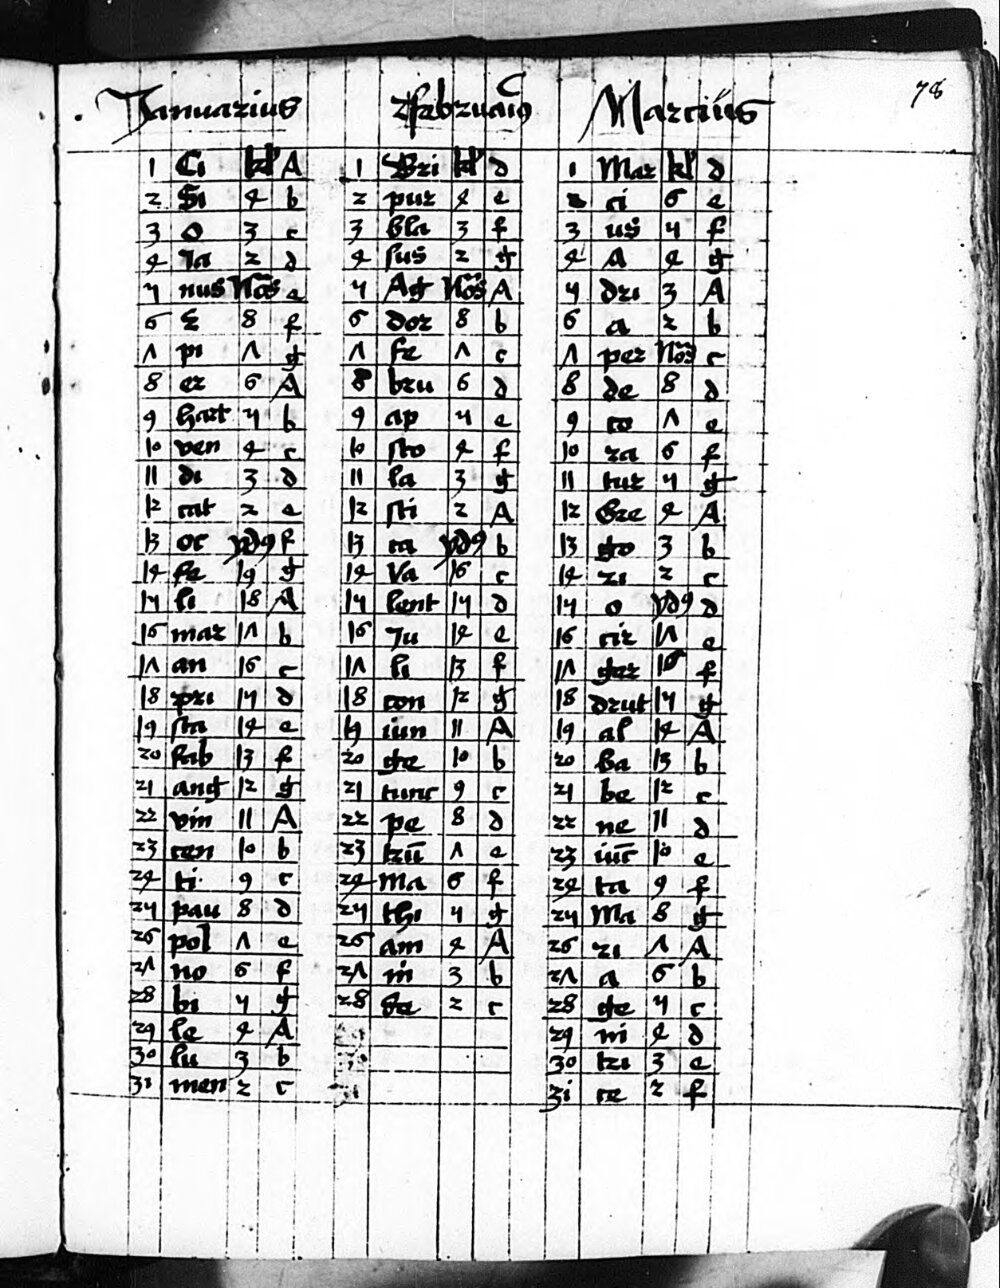 Januarius Februari9 Marcius 78
1 Ci kl' A 1 Bri kl' d 1 Mar kl' d
2 Si 4 b 2 pur 4 e 2 ci 6 e
3 o 3 c 3 bla 3 f 3 us 5 f
4 Ja 2 d 4 sus 2 g 4 A 4 g
5 nus Nōs e 5 Ag Nōs A 5 dri 3 A
6 E 8 f 6 dor 8 b 6 a 2 b
7 pi 7 g 7 fe 7 c 7 per Nōs c
8 er 6 A 8 bru 6 d 8 de 8 d
9 hart 5 b 9 ap 5 e 9 co 7 e
10 ven 4 c 10 sto 4 f 10 ra 6 f
11 di 3 d 11 la 3 g 11 tur 5 g
12 cat 2 e 12 sti 2 A 12 Gre 4 A
13 oc yd9 f 13 ca yd9 b 13 go 3 b
14 fe 19 g 14 Va 16 c 14 ri 2 c
15 li 18 A 15 lent 15 d 15 o yd9 d
16 mar 17 b 16 Ju 14 e 16 cir 17 e
17 an 16 c 17 li 13 f 17 ger 16 f
18 pri 15 d 18 con 12 g 18 drut 15 g
19 sta 14 e 19 iun 11 A 19 al 14 A
20 fab 13 f 20 ge 10 b 20 Ba 13 b
21 ang 12 g 21 tunc 9 c 21 be 12 c
22 vin 11 A 22 pe 8 d 22 ne 11 d
23 cen 10 b 23 trū 7 e 23 iūc 10 e
24 ti 9 c 24 Ma 6 f 24 ta 9 f
25 pau 8 d 25 thi 5 g 25 Ma 8 g
26 pol 7 e 26 am 4 A 26 ri 7 A
27 no 6 f 27 in 3 b 27 a 6 b
28 bi 5 g 28 de 2 c 28 ge 5 c
29 le 4 A 29 ni 4 d
30 lu 3 b 30 tri 3 e
31 men 2 c 31 ce 2 f